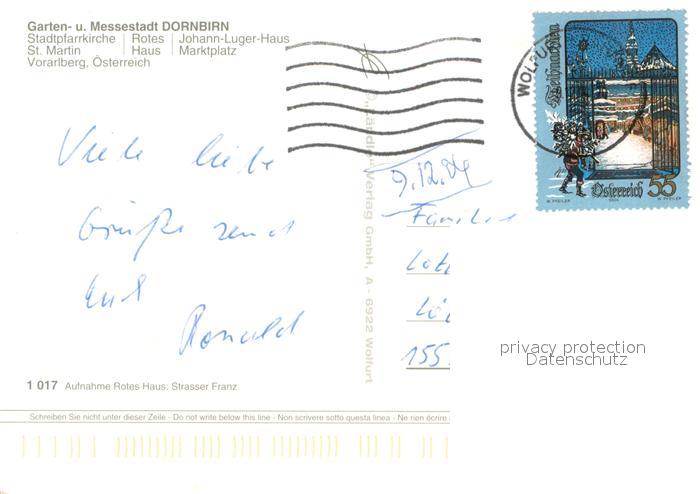 Garten- u. Messestadt DORNBIRN
Stadtpfarrkirche | Rotes | Johann-Luger-Haus
St. Martin | Haus | Marktplatz
Vorarlberg, Österreich
WOLFU
Weihnachten
Österreich 55
W. PFEILER 2004 W. PFEILER
Viele liebe
Grüße send et
Euch
Ronald
9.12.04
Familie
Lot
Lö
155
Ländle Verlag GmbH, A - 6922 Wolfurt
privacy protection
Datenschutz
1 017 Aufnahme Rotes Haus: Strasser Franz
Schreiben Sie nicht unter dieser Zeile - Do not write below this line - Non scrivere sotto questa linea - Ne rien écrire